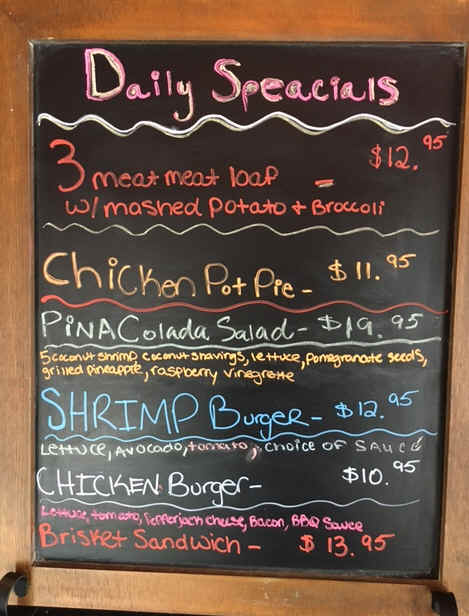 Daily Speacials
3 meat meat loaf - $12.95
w/ mashed Potato + Broccoli
Chicken Pot Pie - $11.95
PiNA Colada Salad - $19.95
5 coconut shrimp, coconut shavings, lettuce, pomegranate seeds,
grilled pineapple, raspberry vinegrette
SHRIMP Burger - $12.95
Lettuce, Avocado, tomato, choice of SAUCE
CHICKEN Burger - $10.95
Lettuce, tomato, Pepperjack cheese, Bacon, BBQ Sauce
Brisket Sandwich - $13.95